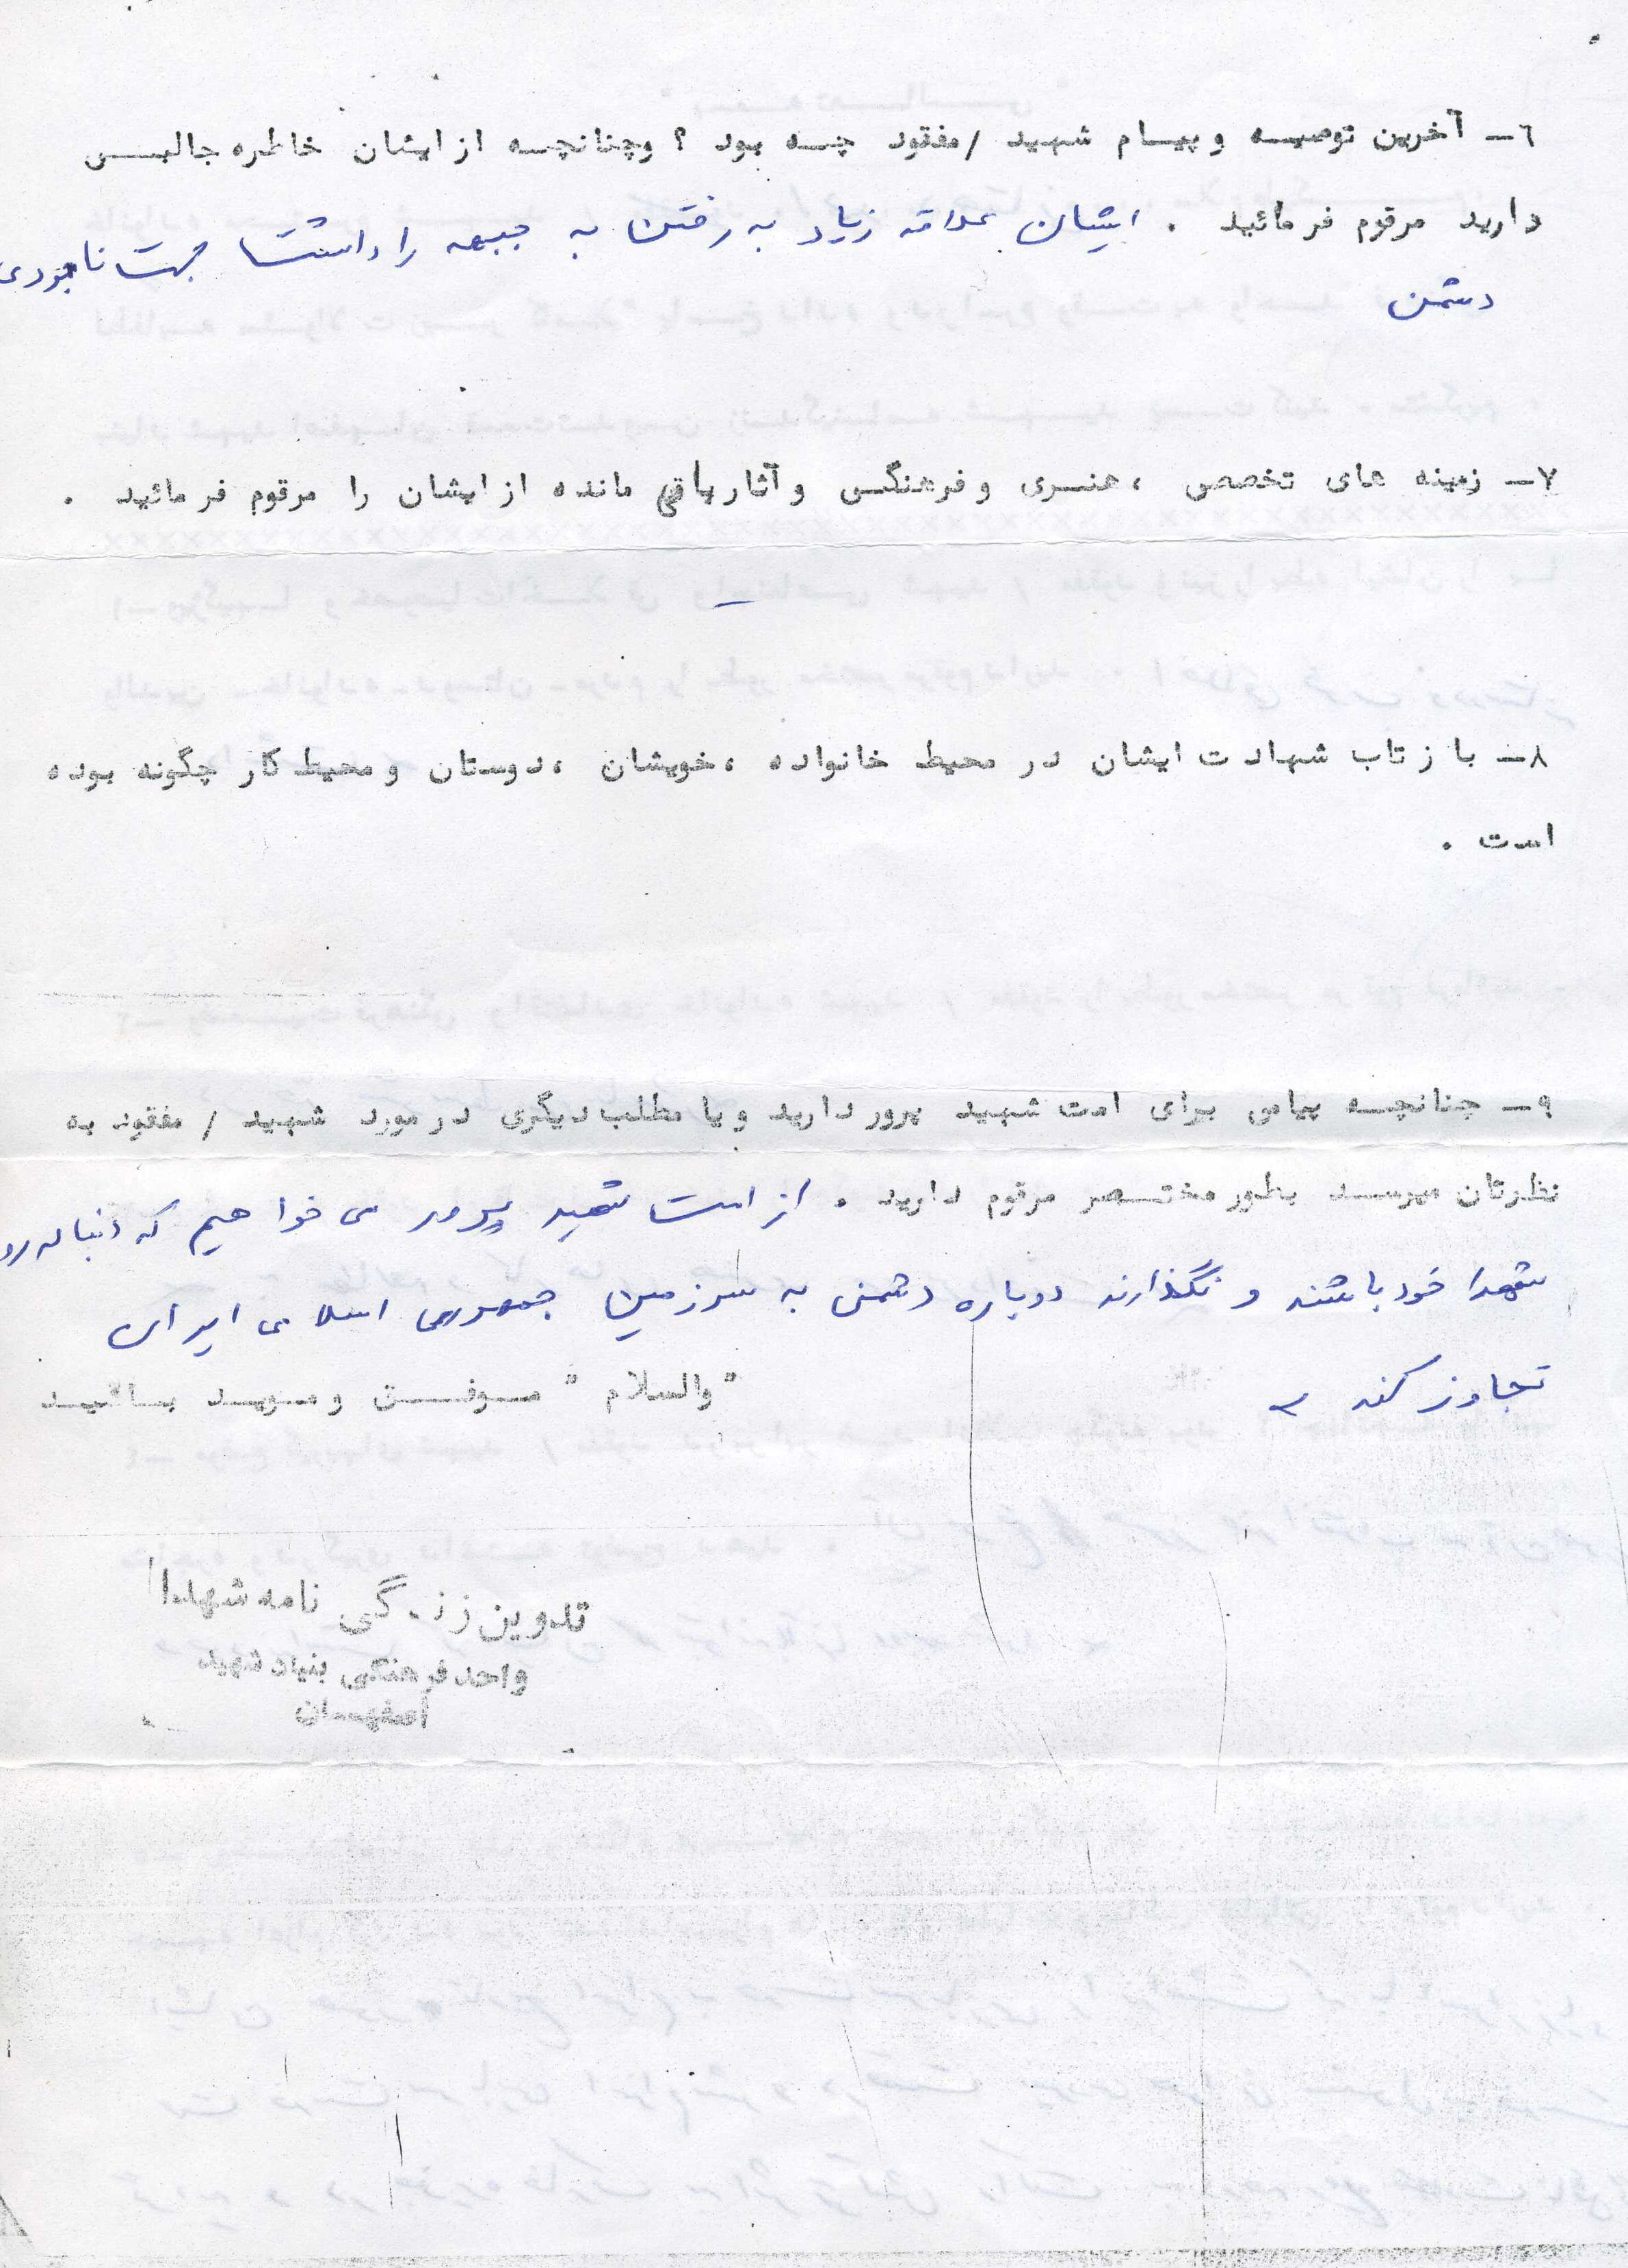 ٦- آخرین توصیه و پیام شهید /مفقود چه بود ؟ وچنانچه از ایشان خاطره جالبی
دارید مرقوم فرمائید . ایشان علاقه زیاد به رفتن به جبهه را داشت جهت نابودی
دشمن
٧- زمینه های تخصصی ، هنری و فرهنگی و آثار باقی مانده از ایشان را مرقوم فرمائید .
-
٨- باز تاب شهادت ایشان در محیط خانواده ، خویشان ، دوستان و محیط کار چگونه بوده
است .
٩- چنانچه پیامی برای امت شهید پرور دارید و یا مطلب دیگری در مورد شهید / مفقود به
نظرتان میرسد بطور مختصر مرقوم دارید . از امت شهید پرور می خواهیم که دنباله رو
شهدا خود باشند و نگذارند دوباره دشمن به سرزمین جمهوری اسلامی ایران
تجاوز کند
" والسلام " موفق و موید باشید
تدوین زندگی نامه شهدا
واحد فرهنگی بنیاد شهید
اصفهان